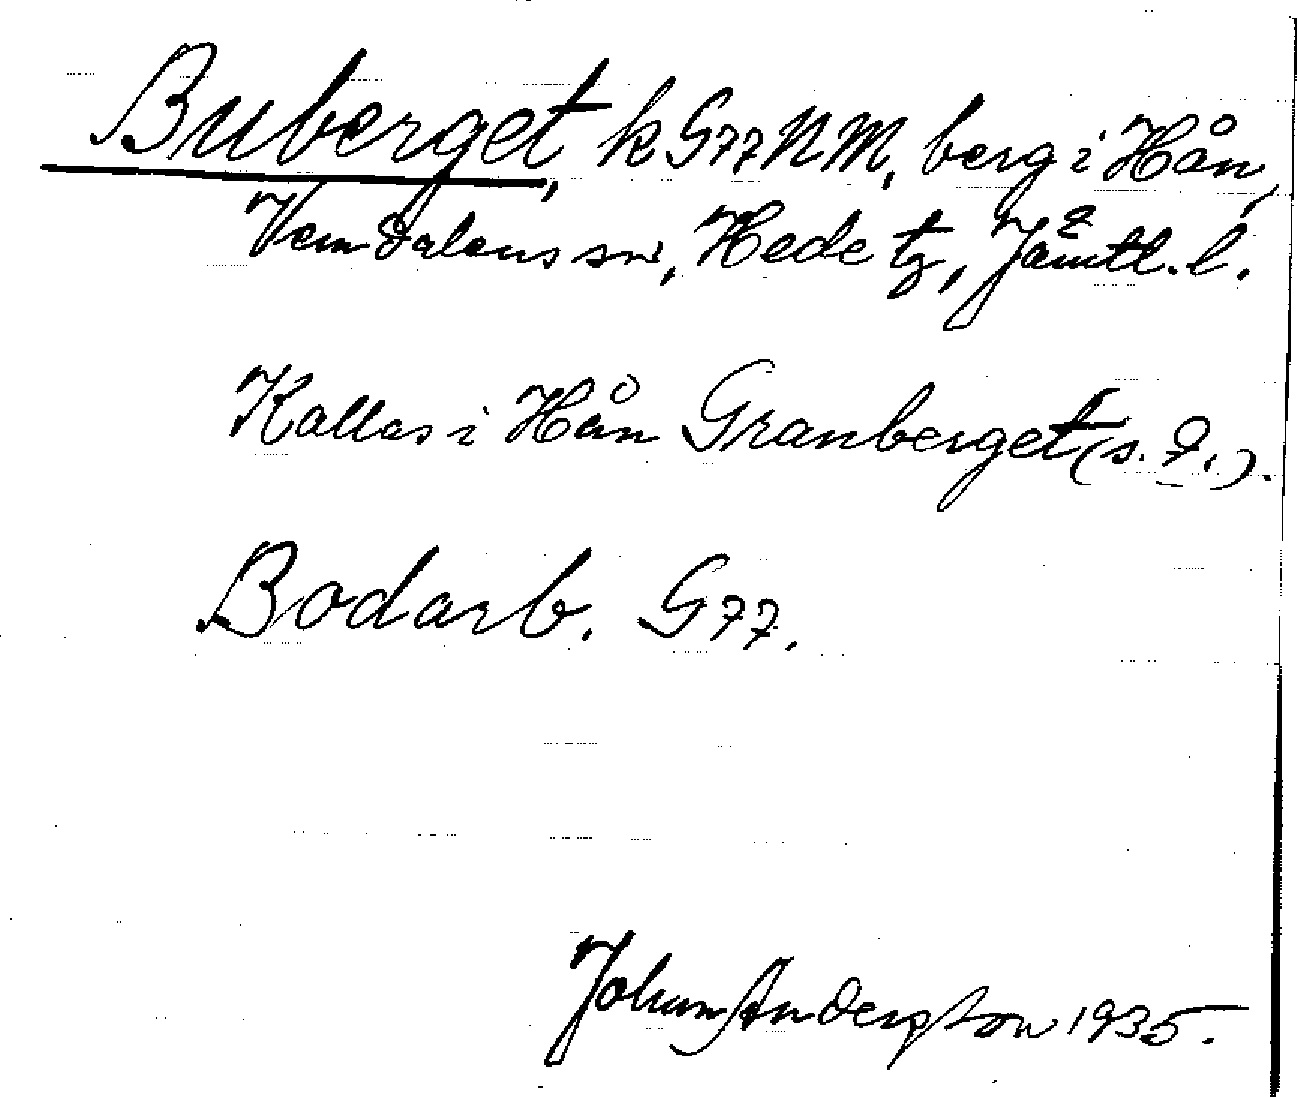 Buberget, k G77 NM, berg i Hån,
Vemdalens sn, Hede tg, Jämtl. l.
Kallas i Hån Granberget (s. d.).
Bodarb. G77.
Johan Andersson 1935.